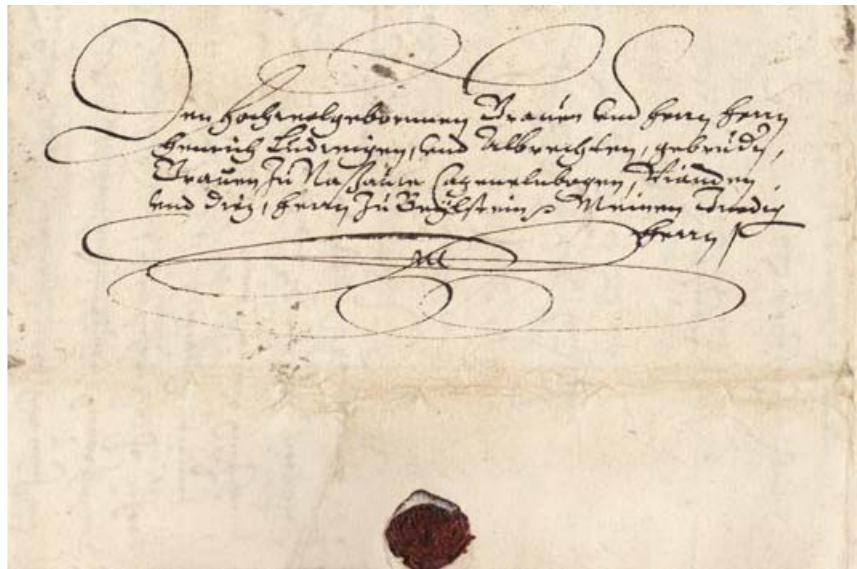 Den Hochwolgebornnen Graven vnd Herrn Herrn
Henrich Ludwigen, vnd Albrechten, gebrüdern,
Graven Zu Naßaúw Catzenelnbogen, Vianden,
vnd Dietz, Herrn Zu Beÿlstein Meinen Gnedig
Herrn